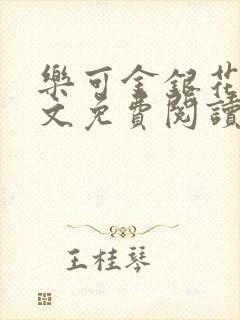 樂可金銀花
文免費閱讀
王桂琴